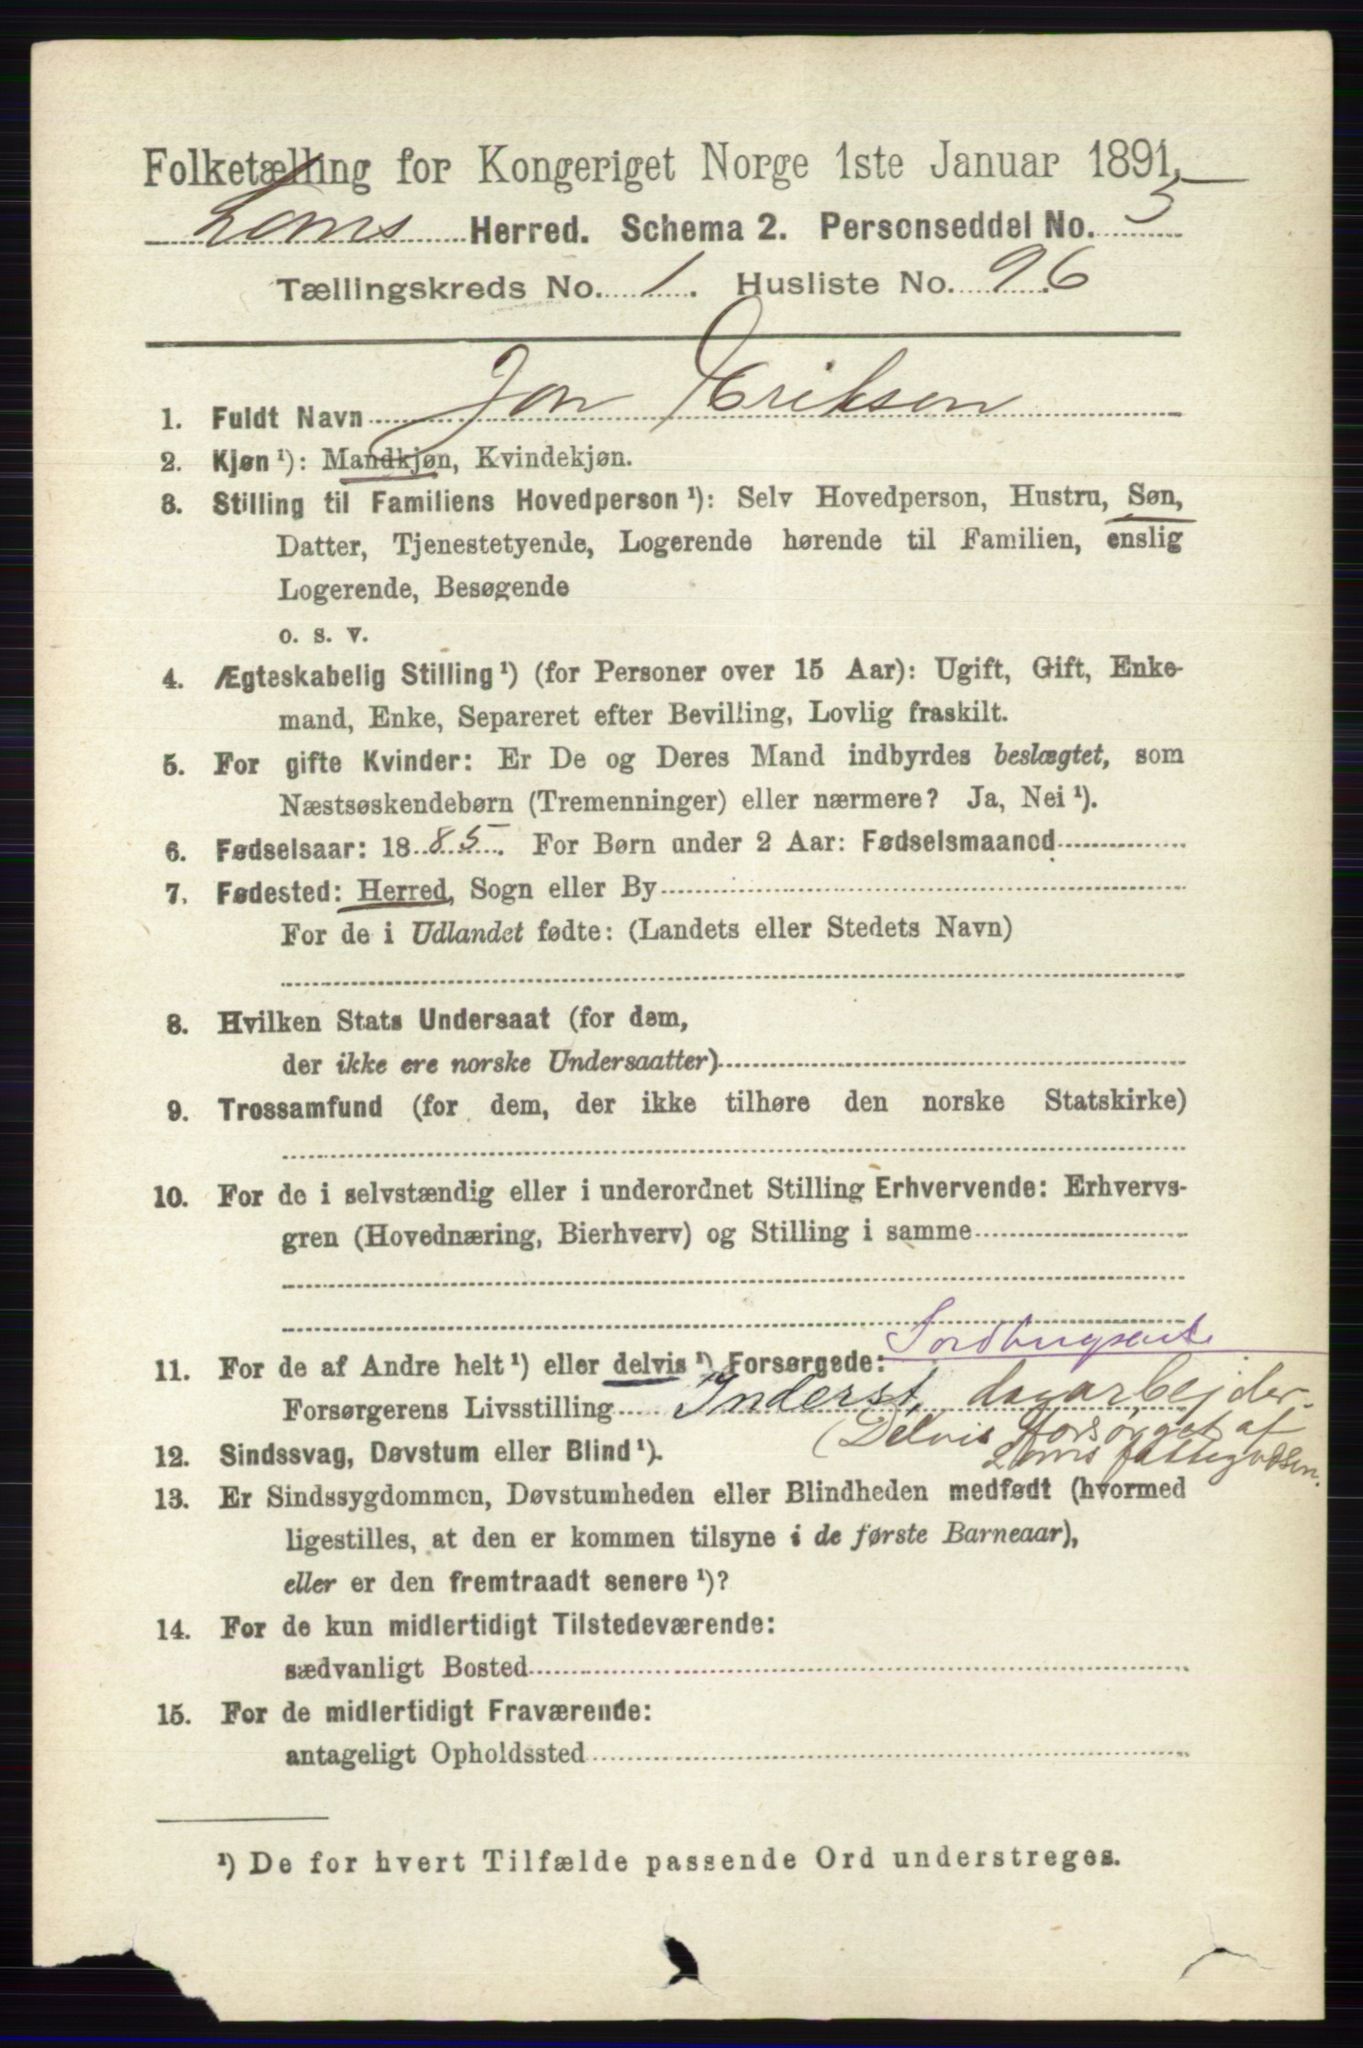 Folketælling for Kongeriget Norge 1ste Januar 1891.
Loms Herred. Schema 2. Personseddel No. 5
Tællingskreds No. 1. Husliste No. 96
1. Fuldt Navn Jon Eriksen
2. Kjøn¹): Mandkjøn, Kvindekjøn.
3. Stilling til Familiens Hovedperson¹): Selv Hovedperson, Hustru, Søn,
Datter, Tjenestetyende, Logerende hørende til Familien, enslig
Logerende, Besøgende
o. s. v.
4. Ægteskabelig Stilling¹) (for Personer over 15 Aar): Ugift, Gift, Enke-
mand, Enke, Separeret efter Bevilling, Lovlig fraskilt.
5. For gifte Kvinder: Er De og Deres Mand indbyrdes beslægtet, som
Næstsøskendebørn (Tremenninger) eller nærmere? Ja, Nei¹).
6. Fødselsaar: 1885. For Børn under 2 Aar: Fødselsmaaned
7. Fødested: Herred, Sogn eller By
For de i Udlandet fødte: (Landets eller Stedets Navn)
8. Hvilken Stats Undersaat (for dem,
der ikke ere norske Undersaatter)
9. Trossamfund (for dem, der ikke tilhøre den norske Statskirke)
10. For de i selvstændig eller i underordnet Stilling Erhvervende: Erhvervs-
gren (Hovednæring, Bierhverv) og Stilling i samme
Jordbrugsarb
11. For de af Andre helt¹) eller delvis¹) Forsørgede:
Forsørgerens Livsstilling Inderst, dagarbejder.
(Delvis forsørget af
12. Sindssvag, Døvstum eller Blind¹).
Loms fattigvæsen.
13. Er Sindssygdommen, Døvstumheden eller Blindheden medfødt (hvormed
ligestilles, at den er kommen tilsyne i de første Barneaar),
eller er den fremtraadt senere¹)?
14. For de kun midlertidigt Tilstedeværende:
sædvanligt Bosted
15. For de midlertidigt Fraværende:
antageligt Opholdssted
¹) De for hvert Tilfælde passende Ord understreges.